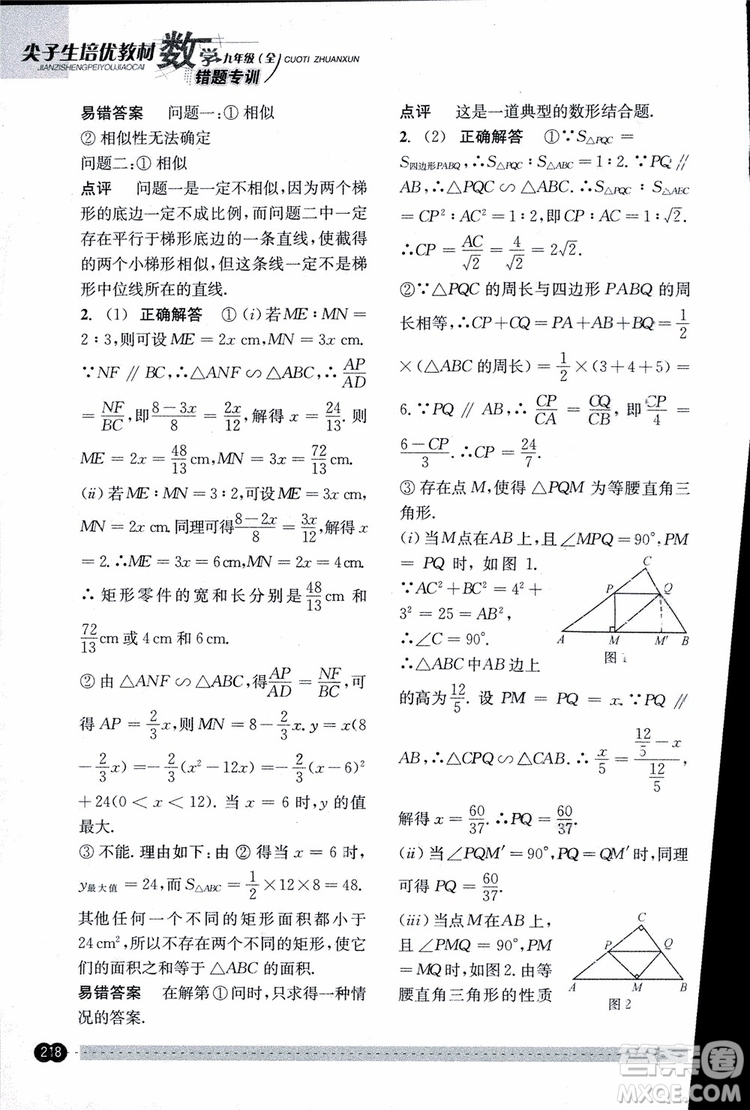 尖子生培优教材
JIANZISHENGPEIYOUJIAOCAI
数学九年级(全)
CUOTI ZHUANXUN
错题专训
易错答案 问题一:①相似
②相似性无法确定
问题二:①相似
点评 问题一是一定不相似,因为两个梯
形的底边一定不成比例,而问题二中一定
存在平行于梯形底边的一条直线,使截得
的两个小梯形相似,但这条线一定不是梯
形中位线所在的直线.
2. (1) 正确解答 ①(i)若ME∶MN=
2∶3,则可设ME=2x cm,MN=3x cm.
∵NF∥BC,∴△ANF∽△ABC,∴AP/AD
=NF/BC,即(8-3x)/8=2x/12,解得x=24/13. 则
ME=2x=48/13 cm,MN=3x=72/13 cm.
(ii)若ME∶MN=3∶2,可设ME=3x cm,
MN=2x cm.同理可得(8-2x)/8=3x/12,解得x=
2. ∴ME=3x=6 cm,MN=2x=4 cm.
∴矩形零件的宽和长分别是48/13 cm,
72/13 cm或4 cm和6 cm.
②由△ANF∽△ABC,得AP/AD=NF/BC,可
得AP=2/3x,则MN=8-2/3x. y=x(8
-2/3x)=-2/3(x²-12x)=-2/3(x-6)²
+24(0<x<12). 当x=6时,y的值
最大.
③不能. 理由如下:由②得当x=6时,
y最大值=24,而S△ABC=1/2×12×8=48.
其他任何一个不同的矩形面积都小于
24 cm²,所以不存在两个不同的矩形,使它
们的面积之和等于△ABC的面积.
易错答案 在解第①问时,只求得一种情
况的答案.
点评 这是一道典型的数形结合题.
2. (2) 正确解答 ①∵S△PQC=
S四边形PABQ,∴S△PQC∶S△ABC=1∶2. ∵PQ∥
AB,∴△PQC∽△ABC,∴S△PQC∶S△ABC
=CP²∶AC²=1∶2,即CP∶AC=1∶√2.
∴CP=AC/√2=4/√2=2√2.
②∵△PQC的周长与四边形PABQ的周
长相等,∴CP+CQ=PA+AB+BQ=1/2
×(△ABC的周长)=1/2×(3+4+5)=
6. ∵PQ∥AB,∴CP/CA=CQ/CB,即CP/4=
(6-CP)/3. ∴CP=24/7.
③存在点M,使得△PQM为等腰直角三
角形.
(i)当M在AB上,且∠MPQ=90°,PM
=PQ时,如图1.
∵AC²+BC²=4²+
3²=25=AB²,
∴∠C=90°.
∴△ABC中AB边上
的高为12/5. 设PM=PQ=x. ∵PQ∥
AB,∴△CPQ∽△CAB,∴x/5=(12/5-x)/(12/5)
解得x=60/37. ∴PQ=60/37.
(ii)当∠PQM′=90°,PQ=QM′时,同理
可得PQ=60/37.
(iii)当点M在AB上,
∠PMQ=90°,PM=
MQ时,如图2.由等
腰直角三角形的性质
C
P
Q
A
M
M′
B
图1
C
P
Q
A
M
B
图2
218
答案圈
MXQE.COM